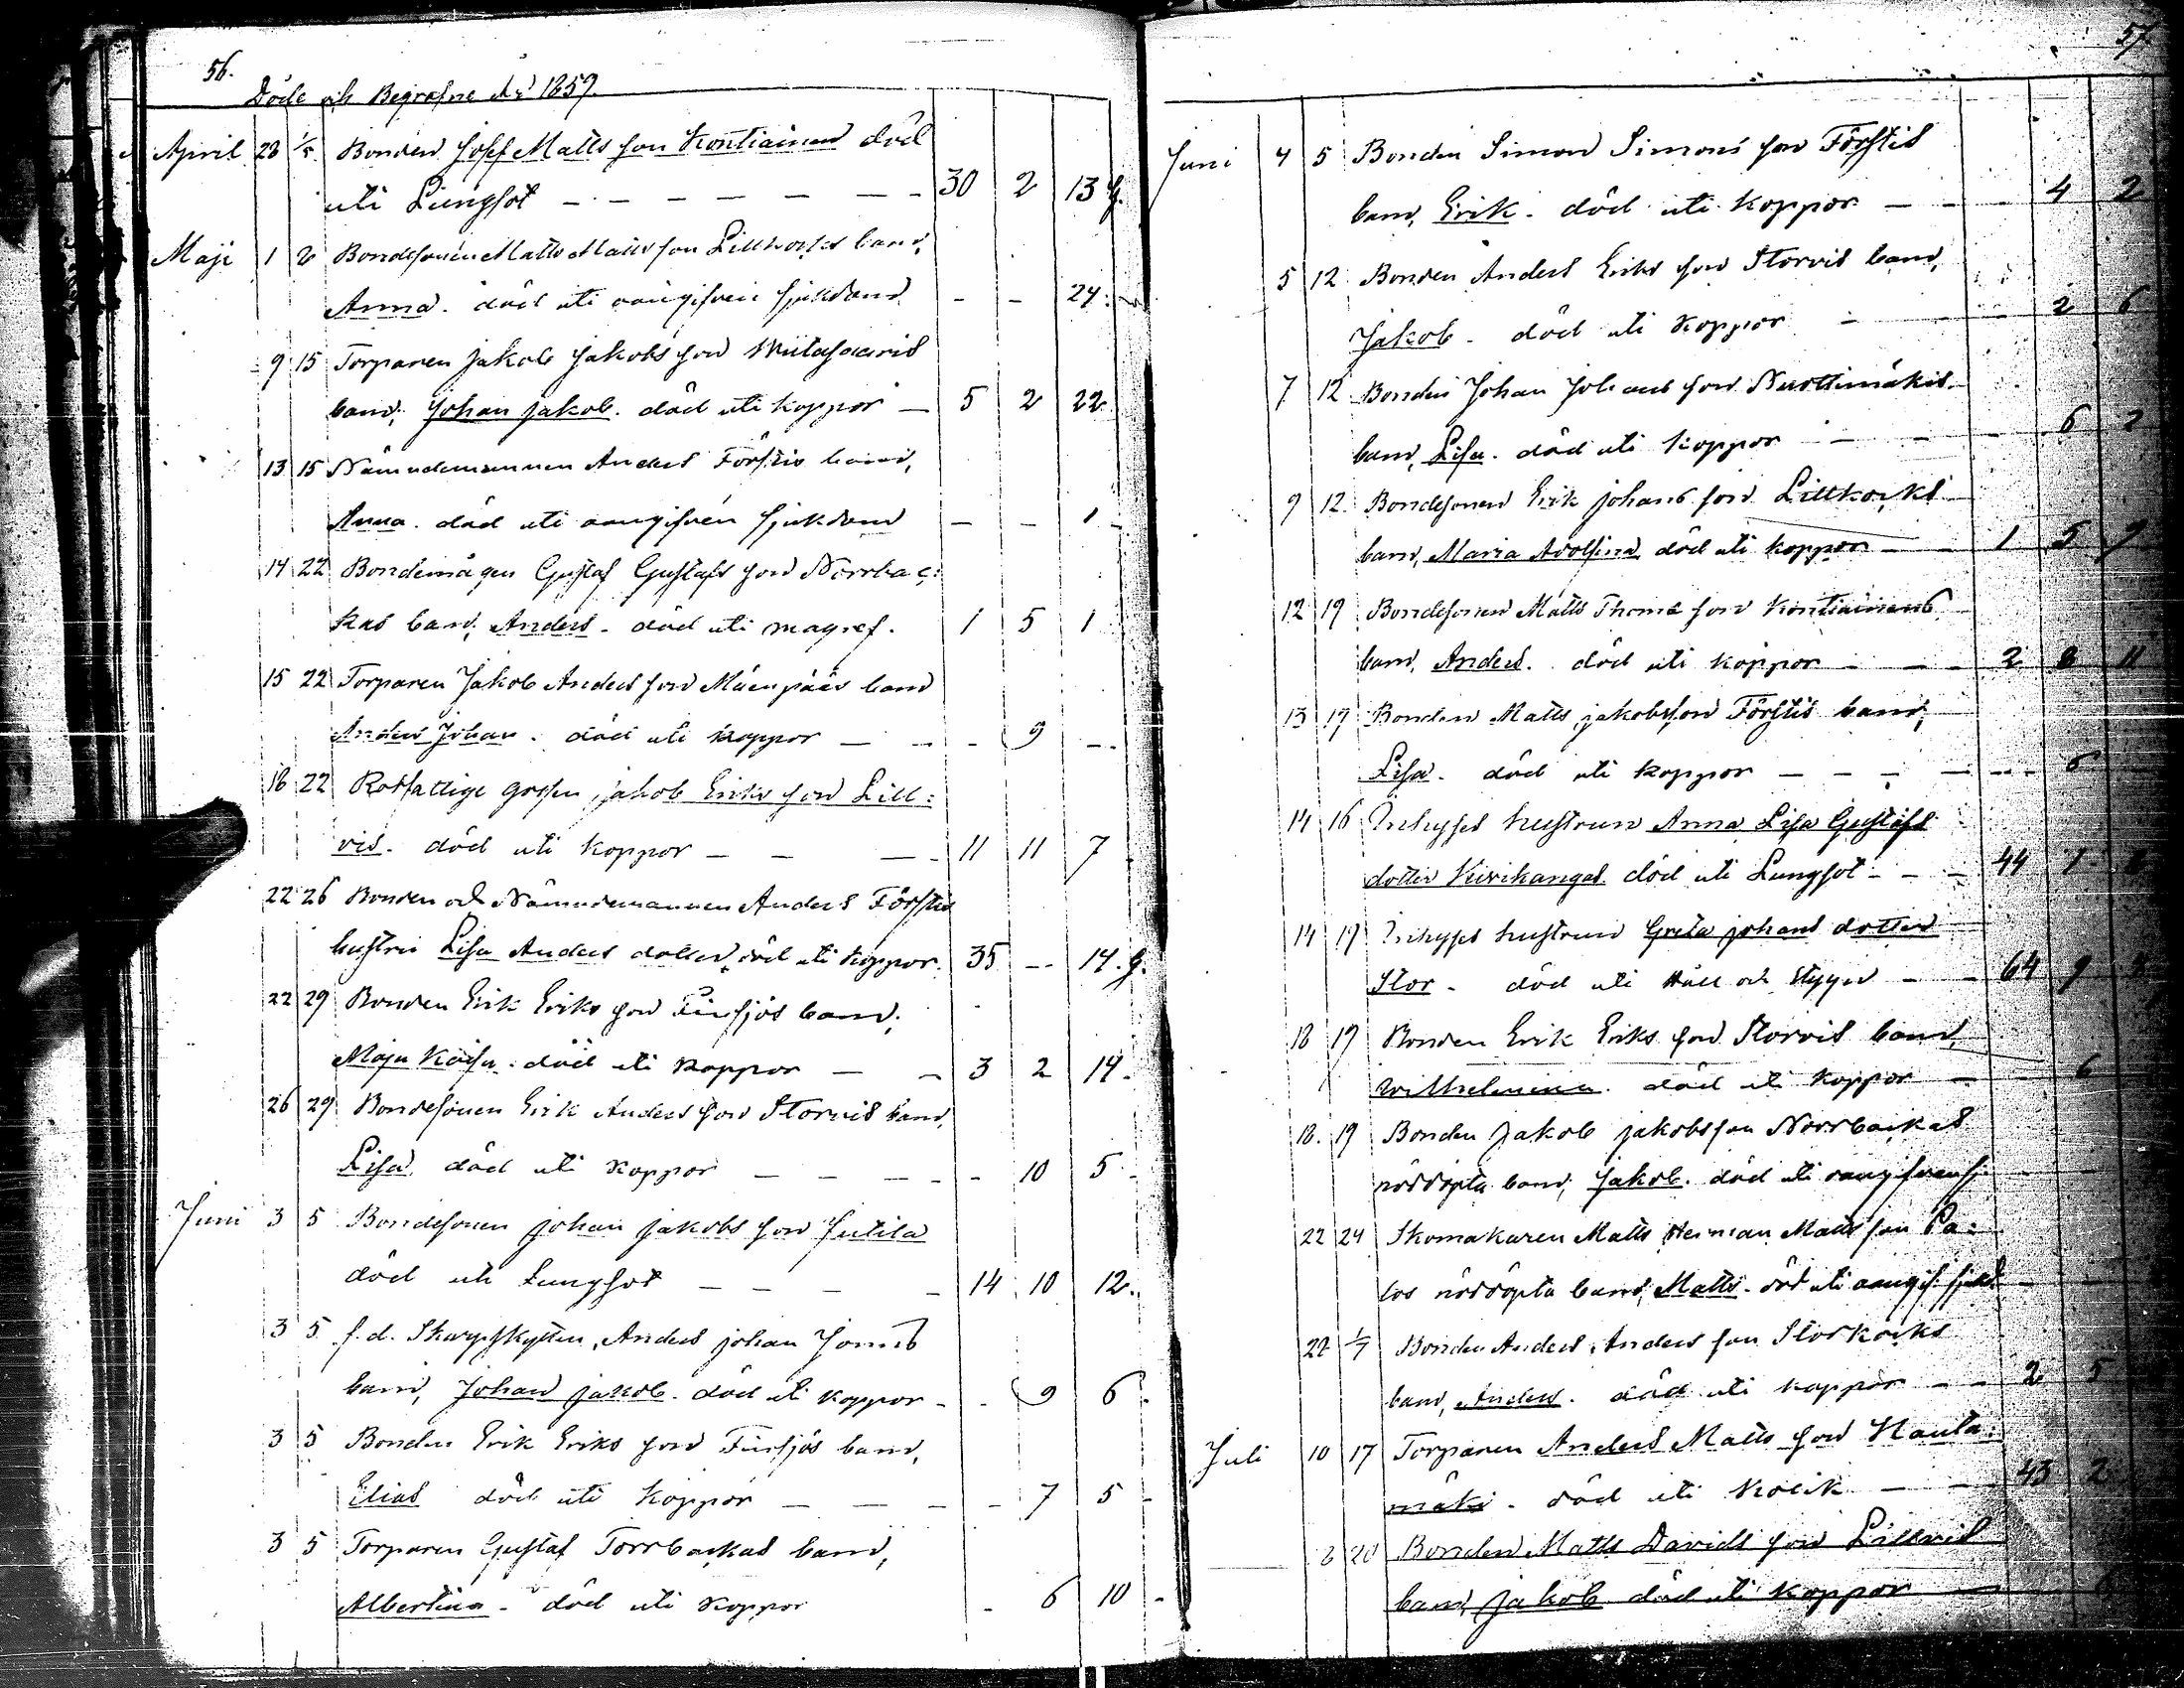 56.
Döde och Begrafne År 1859.
April 28 1/5 Bonden Josef Matts son Kontiainen död
uti Lungsot — — — 30 2 13 g.
Maji 1 2 Bondesonen Matts Matts son Lillkorks barn,
Anna. död uti oangifven sjukdom - - 24.
9 15 Torparen Jakob Jakobs son
barn, Johan Jakob. död uti koppor — 5 2 22
13 15 Nämndemannen Anders Förstis barn,
Anna. död uti oangifven sjukdom — - 1 -
14 22 Bondemågen Gustaf Gustafs son Norrbac:
kas barn, Anders. död uti magref. 1 5 1
15 22 Torparen Jakob Anders son Mäenpääs barn
Anders Johan. död uti koppor — - 9 -
18 22 Rotfattige gossen, Jakob Eriks son Lill:
vis. död uti koppor — — 11 11 7
22 26 Bonden och Nämndemannen Anders Förstis
hustru Lisa Anders dotter, död uti koppor. 35 - 14. g.
22 29 Bonden Erik Eriks son Finsjös barn,
Maja Kaisa. död uti koppor — 3 2 14.
26 29 Bondesonen Erik Anders son Storvis barn,
Lisa död uti koppor — - 10 5 -
Juni 3 5 Bondesonen Johan Jakobs son Jutila
död uti Lungsot — — 14 10 12.
3 5 f.d. Skarpskytten, Anders Johan
barn, Johan Jakob. död uti koppor - - 9 6.
3 5 Bonden Erik Eriks son Finsjös barn,
Elias död uti koppor — - 7 5 -
3 5 Torparen Gustaf Torrbackas barn,
Albertina. död uti koppor - 6 10 -
57
Juni 4 5 Bonden Simon Simons son Förstis
barn, Erik. död uti koppor — 4 2
5 12 Bonden Anders Eriks son Storvis barn,
Jakob. död uti koppor — 2 6
7 12 Bonden Johan Johans son Nuottimäkis
barn, Lisa. död uti koppor — 6 2
9 12. Bondesonen Erik Johans son Lillkorks
barn, Maria Adolfina död uti koppor — 1 5 7
12 19 Bondesonen Matts Thomas son Kontiainens
barn, Anders. död uti koppor — 2 8 11
13 19 Bonden Matts Jakobsson Förstis barn,
Lisa. död uti koppor — — 6
14 16 Inhyses hustrun Anna Lisa Gustafs
dotter Kivikangas död uti Lungsot — 44 7
14 19 Inhyses hustrun Greta Johans dotter
Stor. död uti Håll och Stygn — 64 9
18 19 Bonden Erik Eriks son Storvis barn,
Wilhelmina. död uti koppor — 6
18. 19 Bonden Jakob Jakobsson Norrbackas
nöddöpta barn, Jakob. död uti oangifven sj
22 24 Skomakaren Matts Herman Mattsson Pa:
los nöddöpta barn, Matts. död uti oangif. sjukd.
22 1/7 Bonden Anders Anders son Storkorks
barn, Anders. död uti koppor — 2 5
Juli 10 17 Torparen Anders Matts son Hauta:
mäki. död uti Kolik — 43 2
20 Bonden Matts Davids son Lillvis
barn, Jakob död uti koppor —